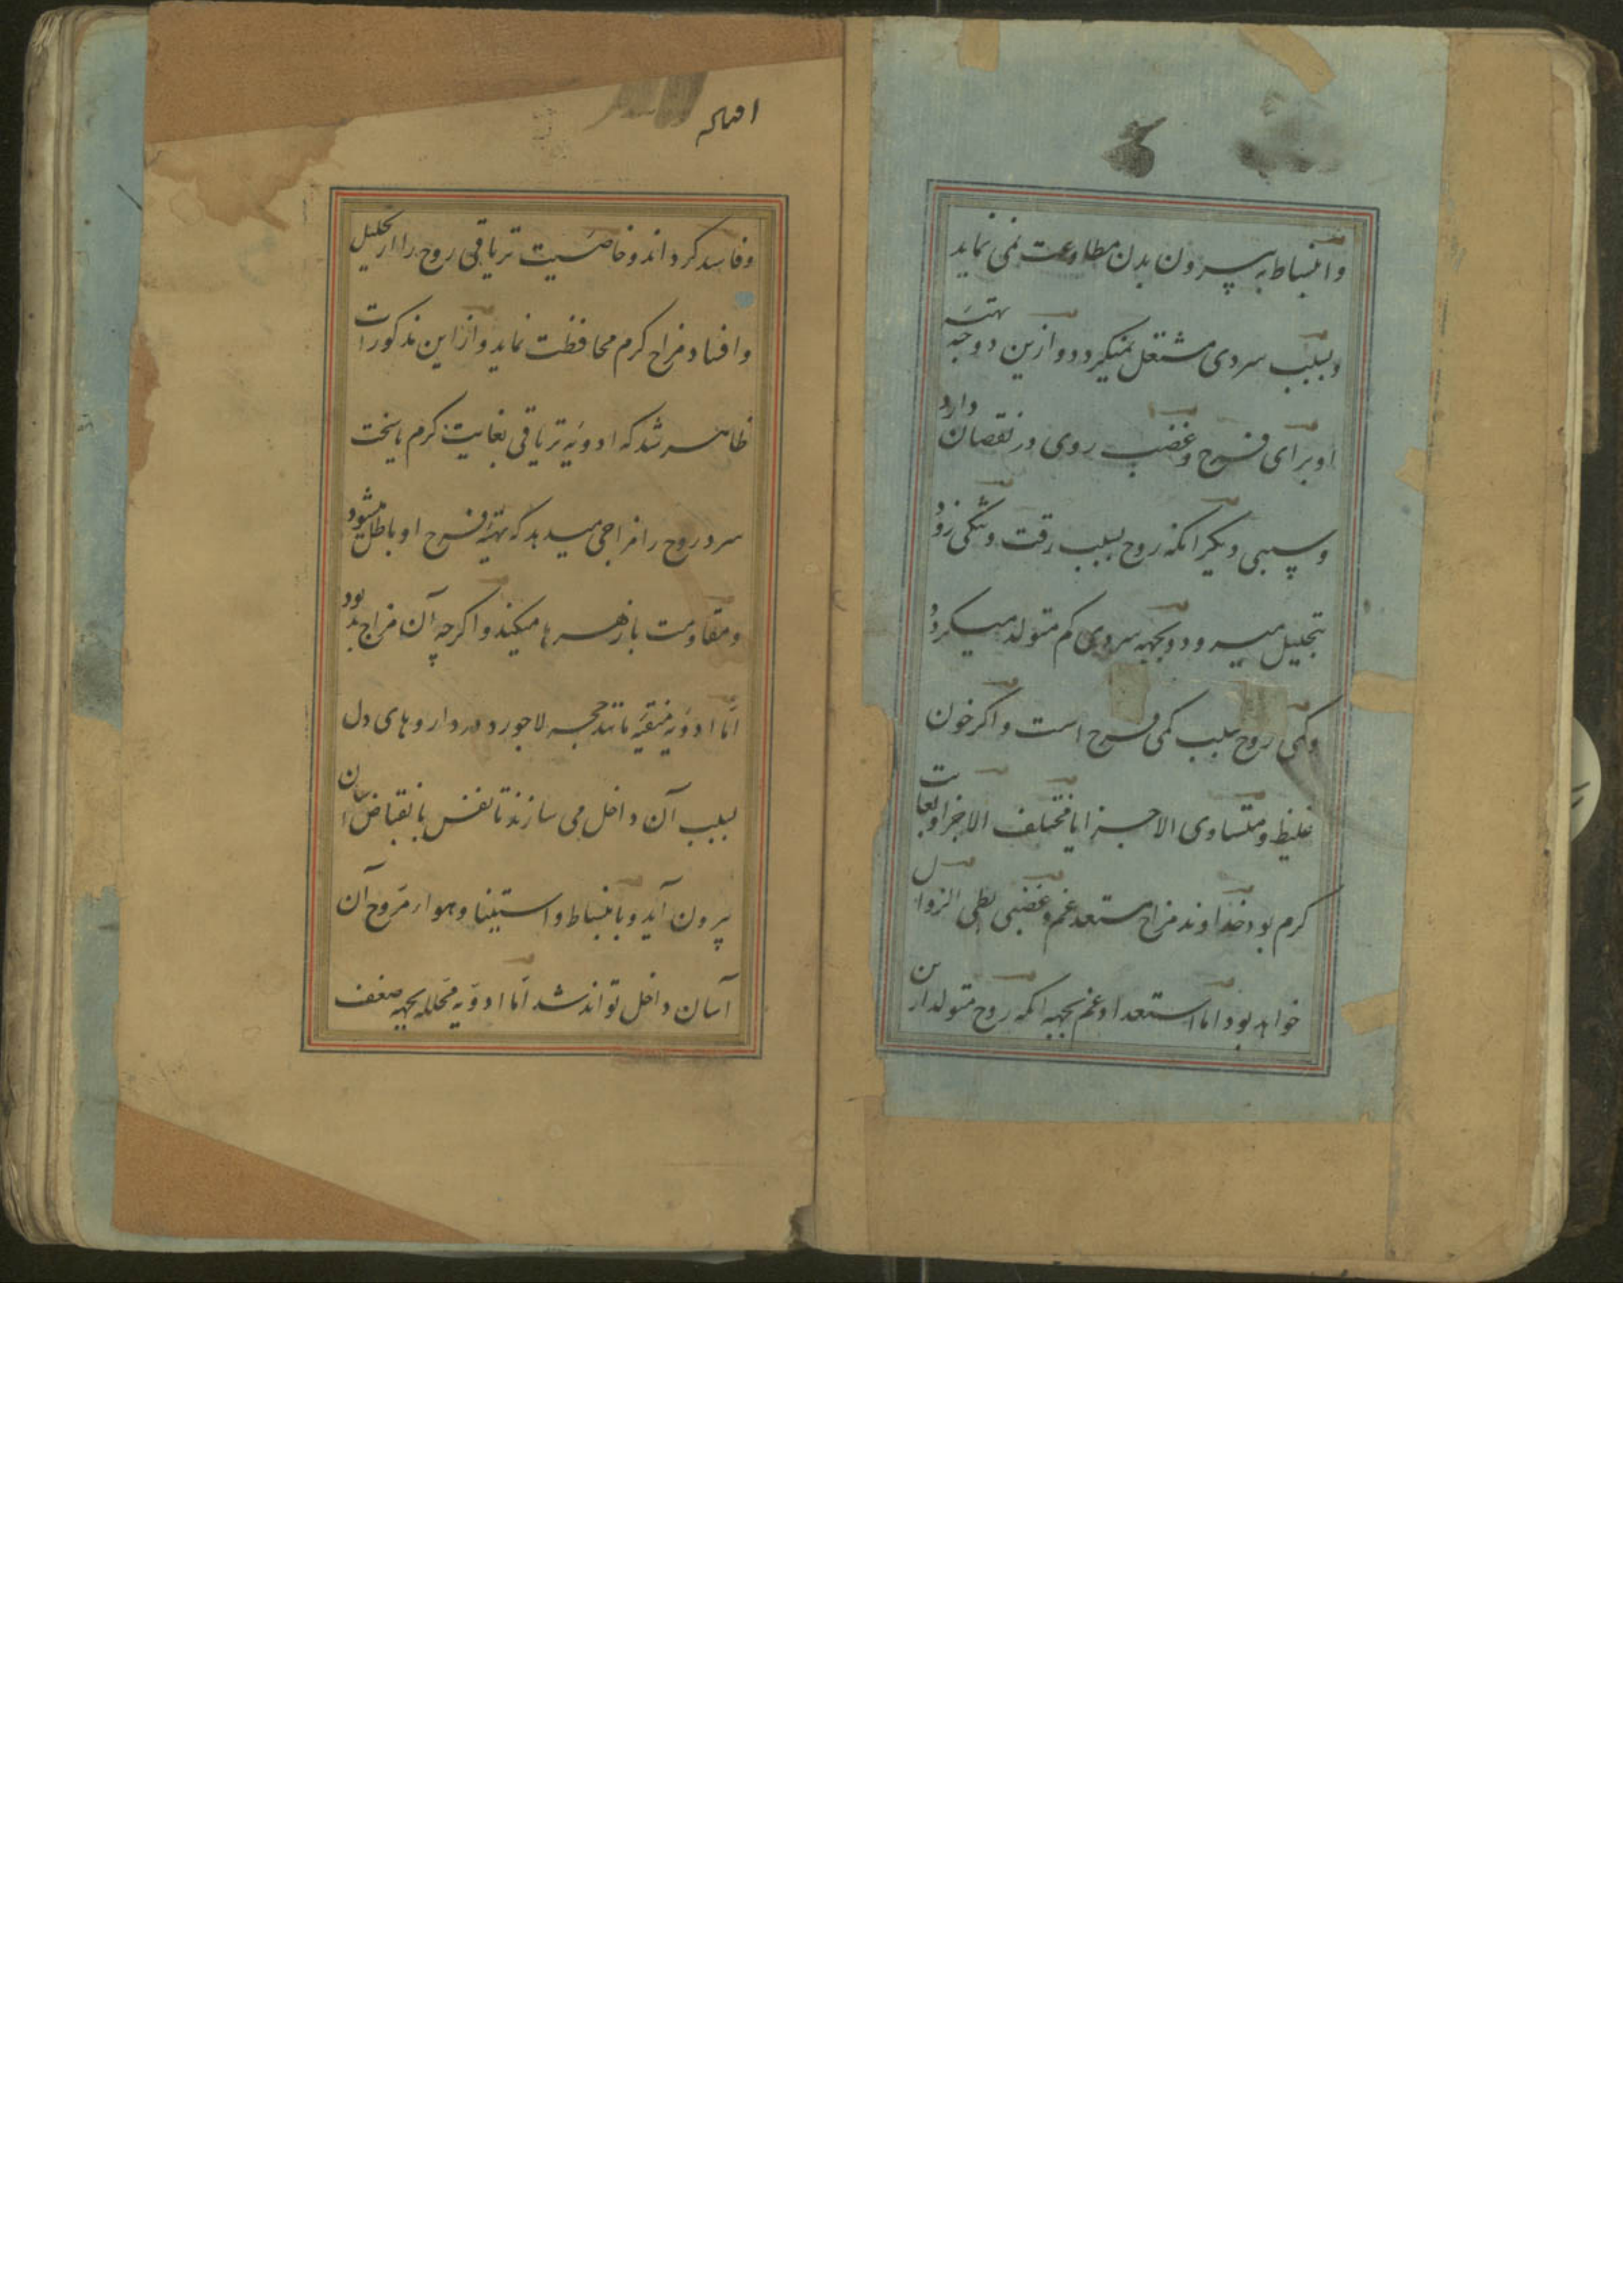 وانبساط به پیرون بدن مطاوعت نمی نماید
وبسبب سردی مشتعل نمیکردد وازین دو جهة تهیه
او برای فرح وغضب روی در نقصان دارد
وسببی دیکر انکه روح بسبب رقت وتنکی زود
بتحلیل میرود وبجهه سردی کم متولد میکردد
وکمی روح سبب کمی فرح است واکر خون
غلیظ ومتساوی الاجزا یا مختلف الاجزا وبغایت
کرم بود خداوند مزاج مستعد غم وغضبی بطی الزوال
خواهد بود اما استعداد غم بجهه انکه روح متولد ازین
وفاسد کرداند وخاصیت تریاقی روح را از تحلیل
وافساد مزاج کرم محافظت نماید واز این مذکورات
ظاهر شد که ادویه تریاقی بغایت کرم یا سخت
سرد روح را مزاجی میدهد که تهیه فرح او باطل میشود
ومقاومت با زهرها میکند واکرچه آن مزاج بد بود
اما ادویه منقیه مانند حجر لاجورد در داروهای دل
بسبب آن داخل می سازند تا نفس بانقباض اسان
پرون آید وبانبساط واستینا وهوار مروح آن
آسان داخل تواند شد اما ادویه محلله بجهه ضعف